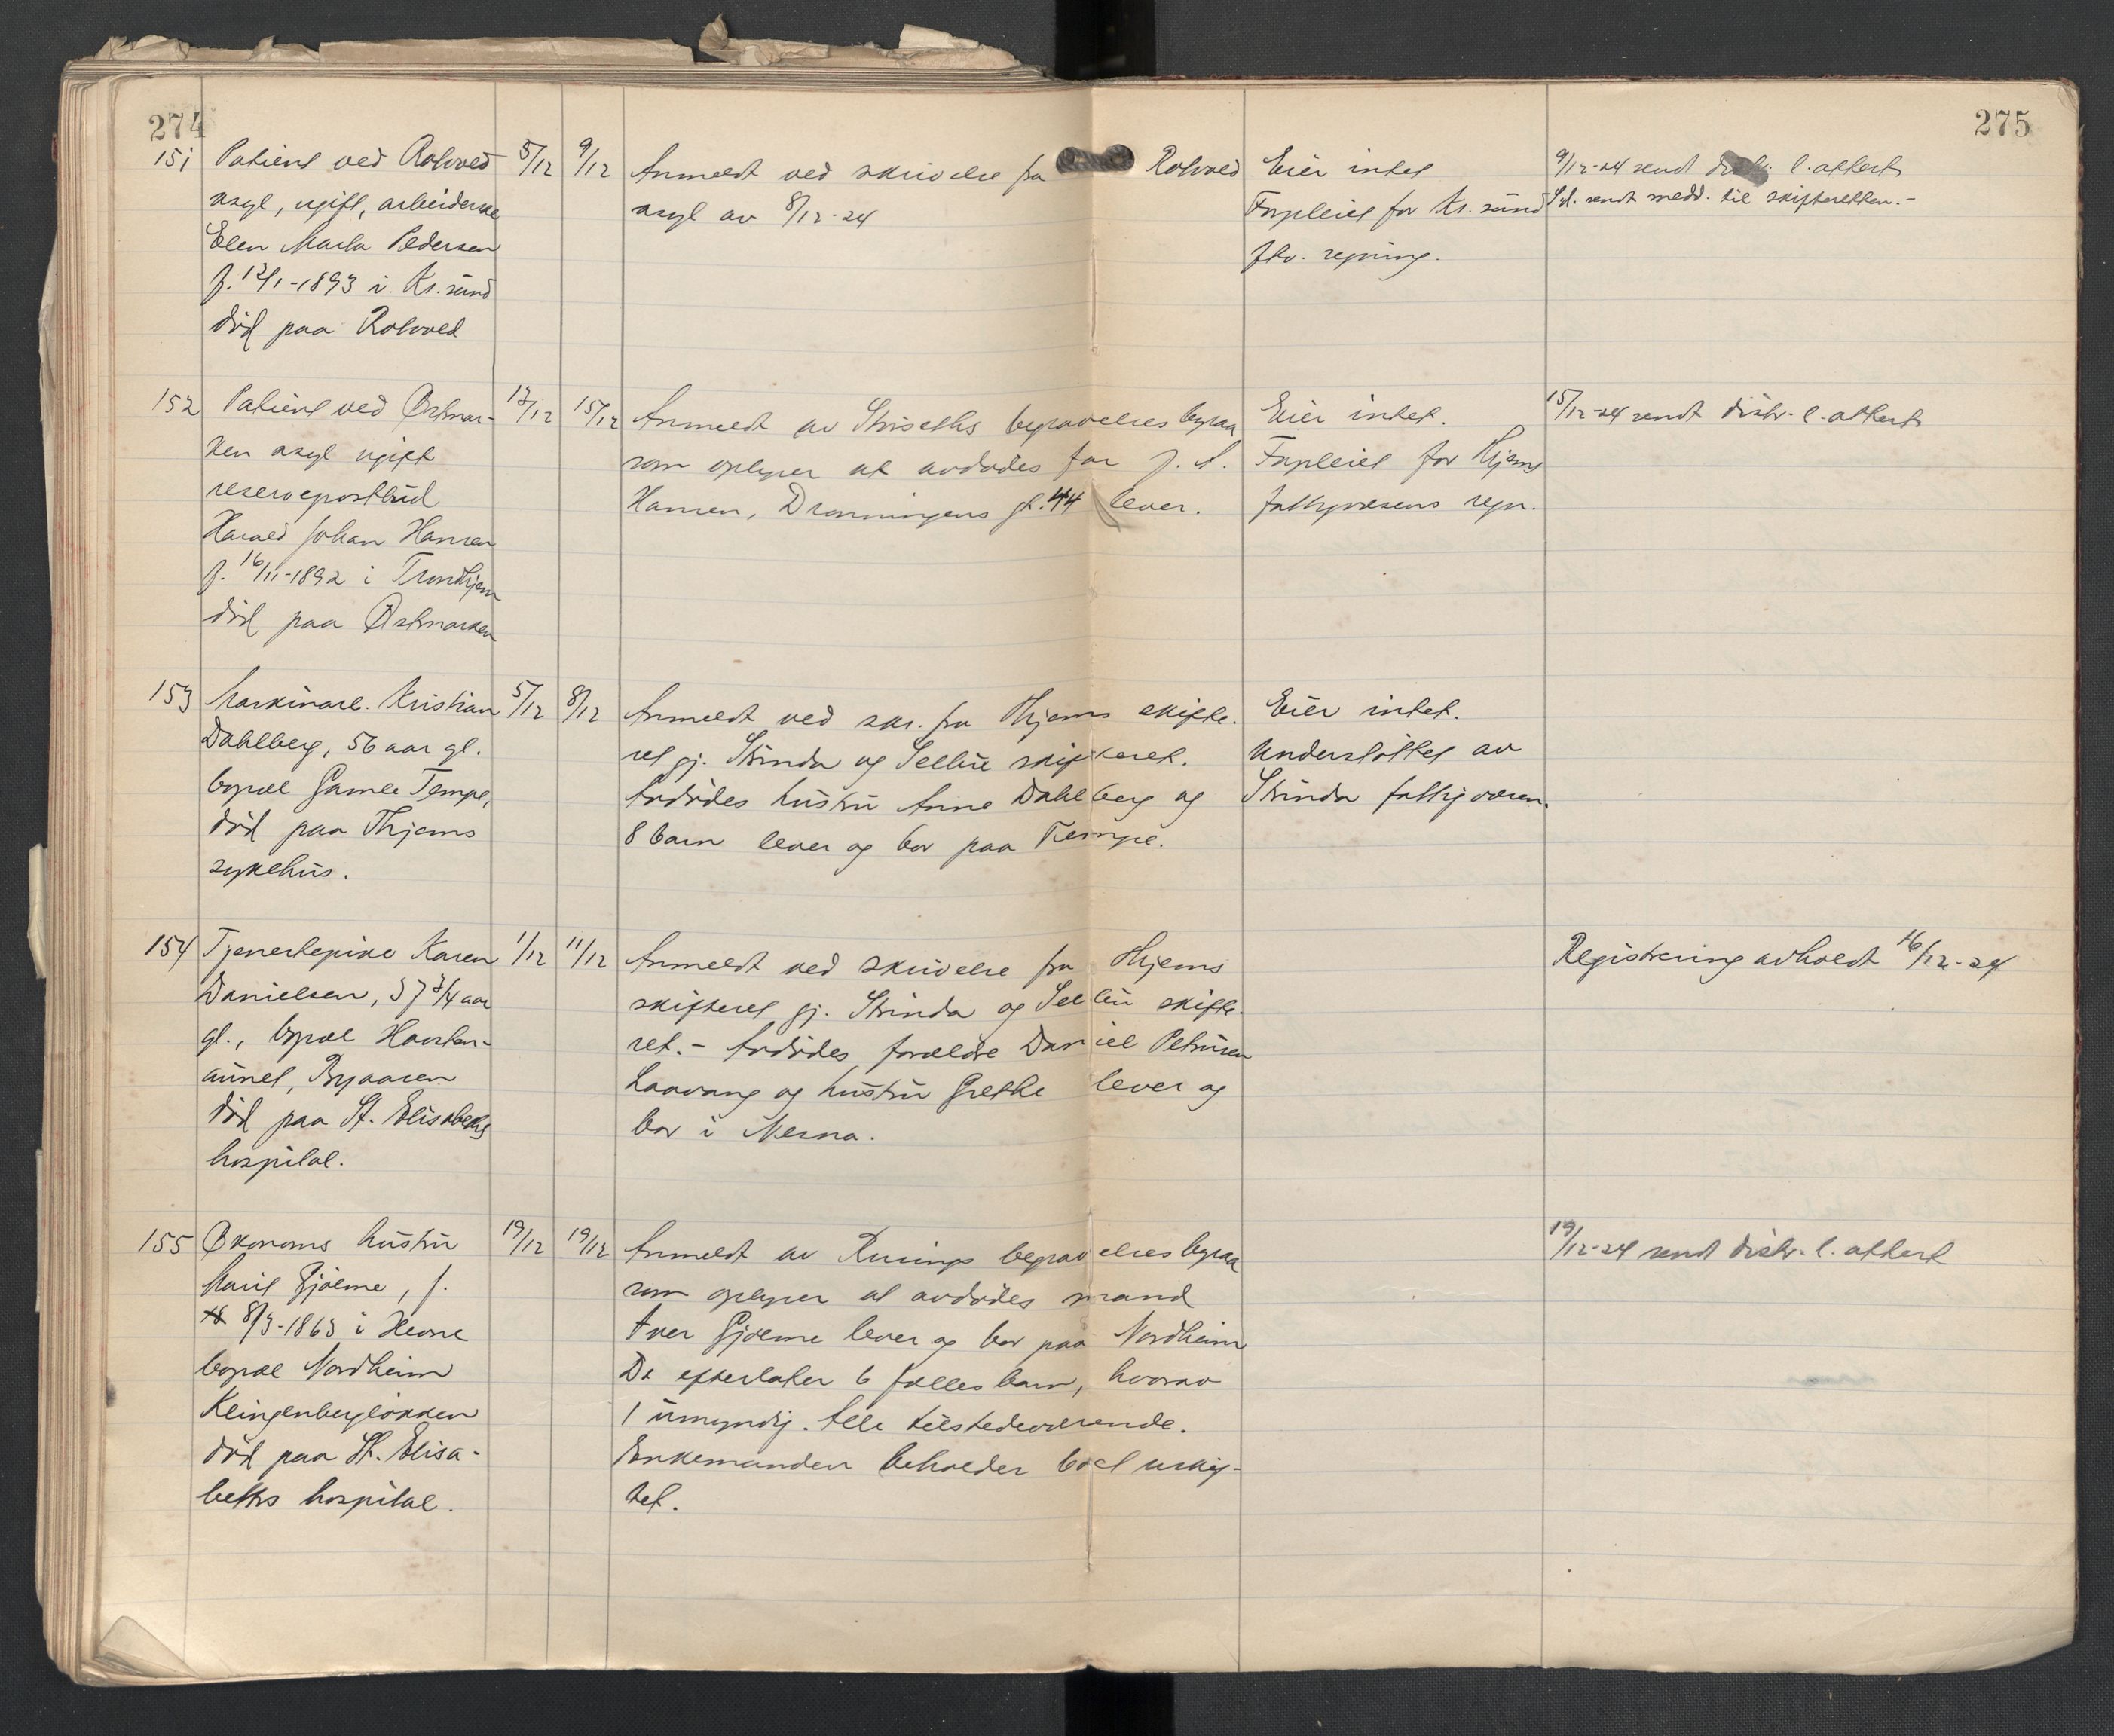 274
275
151 Patient ved Rotvold 5/12 9/12 Anmeldt ved skrivelse fra Rotvold Eier intet 9/12-24 sendt distr. l.attest
asyl, ugift, arbeiderske asyl av 8/12-24 Forpleiet for Kr.sund S.d. sendt medd. til skifteretten.-
Elen Marta Pedersen ftv. regning.
f. 12/1-1893 i Kr.sund
død paa Rotvold
152 Patient ved Østmar- 13/12 15/12 Anmeldt av Striseths begravelsesbyraa Eier intet. 15/12-24 sendt distr. l. attest
ken asyl ugift som oplyser at avdødes far J. A. Forpleiet for Thjems
reservepostbud Hansen, Dronningens gt. 44 lever. fattigvæsens regn.
Harald Johan Hansen
f. 16/11-1892 i Trondhjem
død paa Østmarken
153 Maskinarb. Kristian 5/12 8/12 Anmeldt ved skr. fra Thjems skifte- Eier intet.
Dahlberg, 56 aar gl. ret gj. Strinda og Selbu skifteret. Understøttet av
bopæl Gamle Tempe, Avdødes hustru Anne Dahlberg og Strinda fattigvæsen.
død paa Thjems 8 barn lever og bor paa Tempe.
sykehus.
154 Tjenestepike Karen 1/12 11/12 Anmeldt ved skrivelse fra Thjems Registrering avholdt 16/12-24
Danielsen, 57 3/4 aar skifteret gj. Strinda og Selbu skifte-
gl., bopæl Havsten- ret.- Avdødes forældre Daniel Petersen
aunet, Byaasen Laavang og hustru Grethe lever og
død paa St. Elisabeths bor i Nesna.
hospital.
155 Økonoms hustru 19/12 19/12 Anmeldt av Rusings begravelsesbyraa 19/12-24 sendt distr. l. attest
Marit Gjølme, f. som oplyser at avdødes mand
8/3-1863 i Hevne Iver Gjølme lever og bor paa Nordheim
bopæl Nordheim De efterlater 6 fælles barn, hvorav
Klingenbergløkken 1 umyndig. Alle tilstedeværende.
død paa St. Elisa- Enkemanden beholder boet uskif-
beths hospital. tet.